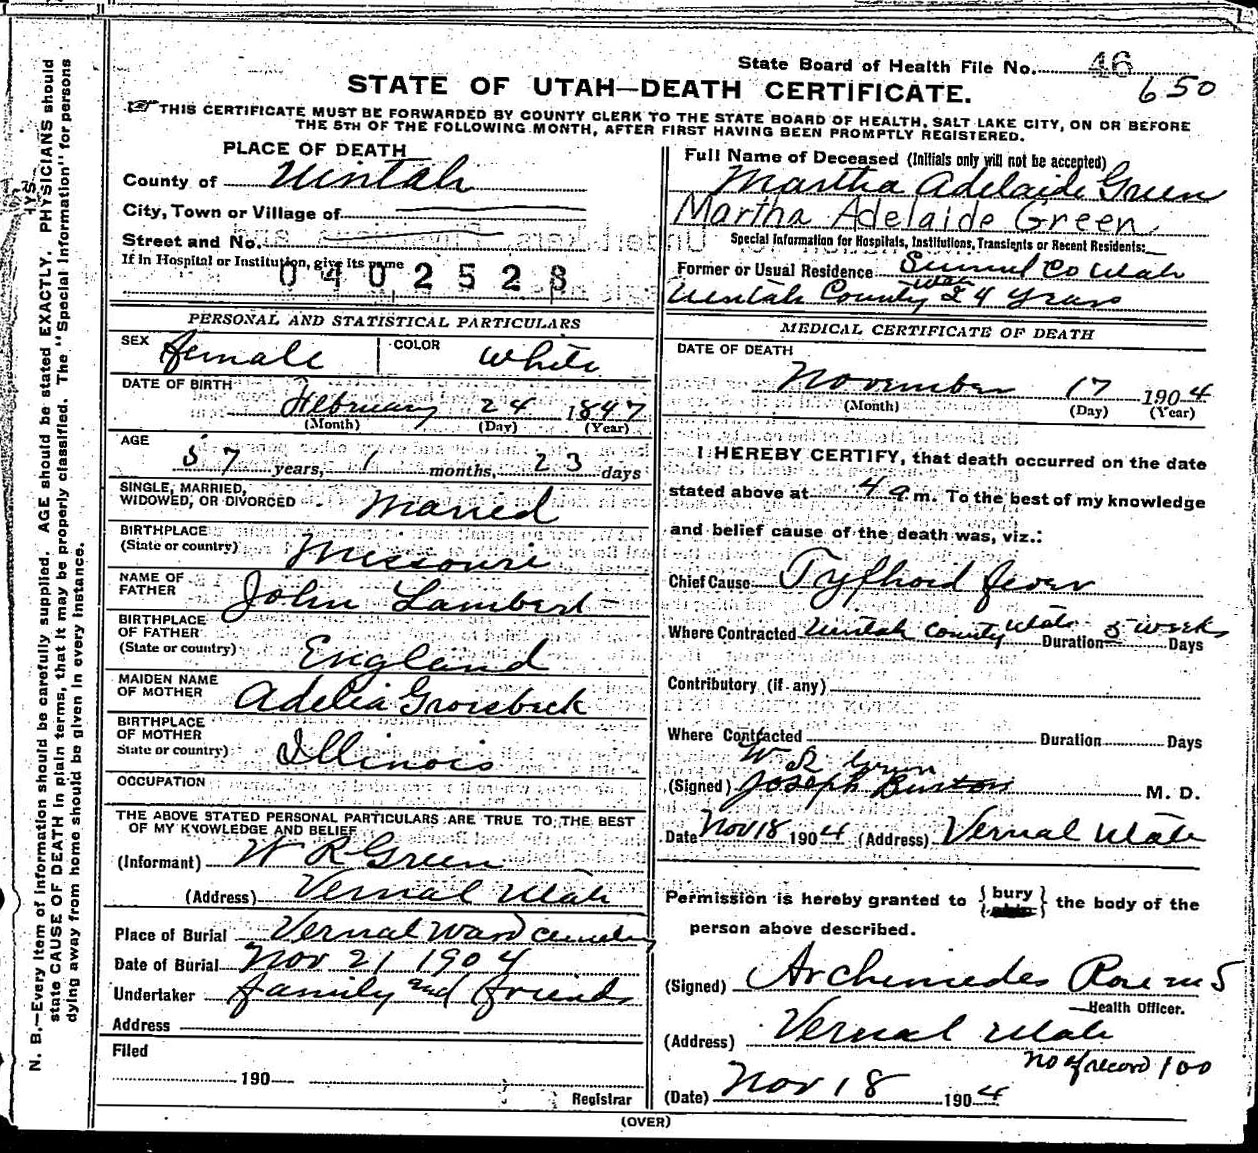 State Board of Health File No. 46
650
STATE OF UTAH—DEATH CERTIFICATE.
THIS CERTIFICATE MUST BE FORWARDED BY COUNTY CLERK TO THE STATE BOARD OF HEALTH, SALT LAKE CITY, ON OR BEFORE
THE 5TH OF THE FOLLOWING MONTH, AFTER FIRST HAVING BEEN PROMPTLY REGISTERED.
PLACE OF DEATH
County of Uintah
City, Town or Village of
Street and No.
If in Hospital or Institution, give its name
0402528
PERSONAL AND STATISTICAL PARTICULARS
SEX female COLOR White
DATE OF BIRTH
February 24 1847
(Month) (Day) (Year)
AGE
57 years, 1 months, 23 days
SINGLE, MARRIED,
WIDOWED, OR DIVORCED Maried
BIRTHPLACE
(State or country) Missouri
NAME OF
FATHER John Lambert
BIRTHPLACE
OF FATHER
(State or country) England
MAIDEN NAME
OF MOTHER Adelia Groisbeck
BIRTHPLACE
OF MOTHER
State or country) Illinois
OCCUPATION
THE ABOVE STATED PERSONAL PARTICULARS ARE TRUE TO THE BEST
OF MY KNOWLEDGE AND BELIEF
(Informant) W R Green
(Address) Vernal Utah
Place of Burial Vernal Ward Cemetery
Date of Burial Nov 21 1904
Undertaker family and friends
Address
Filed
190
Registrar
Full Name of Deceased (Initials only will not be accepted)
Martha Adelaide Green
Martha Adelaide Green
Special Information for Hospitals, Institutions, Transients or Recent Residents:
Former or Usual Residence Co Utah
Uintah County Utah 24 years
MEDICAL CERTIFICATE OF DEATH
DATE OF DEATH
November 17 1904
(Month) (Day) (Year)
I HEREBY CERTIFY, that death occurred on the date
stated above at 4 a m. To the best of my knowledge
and belief cause of the death was, viz.:
Chief Cause Tyfhoid fever
Where Contracted Uintah County Utah Duration 5 weeks Days
Contributory (if any)
Where Contracted Duration Days
W R Green
(Signed) Joseph Burton M. D.
Date Nov 18 1904 (Address) Vernal Utah
Permission is hereby granted to { bury } the body of the
person above described.
(Signed) Archimedes Rose
Health Officer.
(Address) Vernal Utah
no of record 100
(Date) Nov 18 1904
(OVER)
N. B.—Every item of information should be carefully supplied. AGE should be stated EXACTLY. PHYSICIANS should
state CAUSE OF DEATH in plain terms, that it may be properly classified. The "Special Information" for persons
dying away from home should be given in every instance.